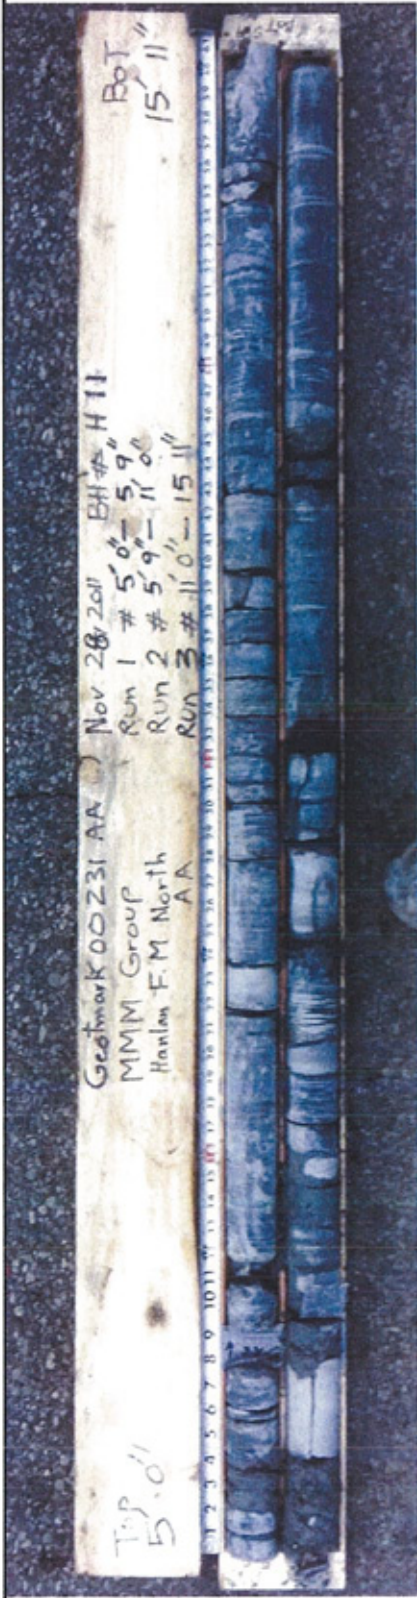 Top
5'.0"
Geotmark 00231 AA
MMM Group
Hanlan F.M North
AA
Nov 28 2011 BH# H11
Run 1 # 5'0" - 5'9"
Run 2 # 5'9" - 11'0"
Run 3 # 11'0" - 15'11"
BOT
15' 11"